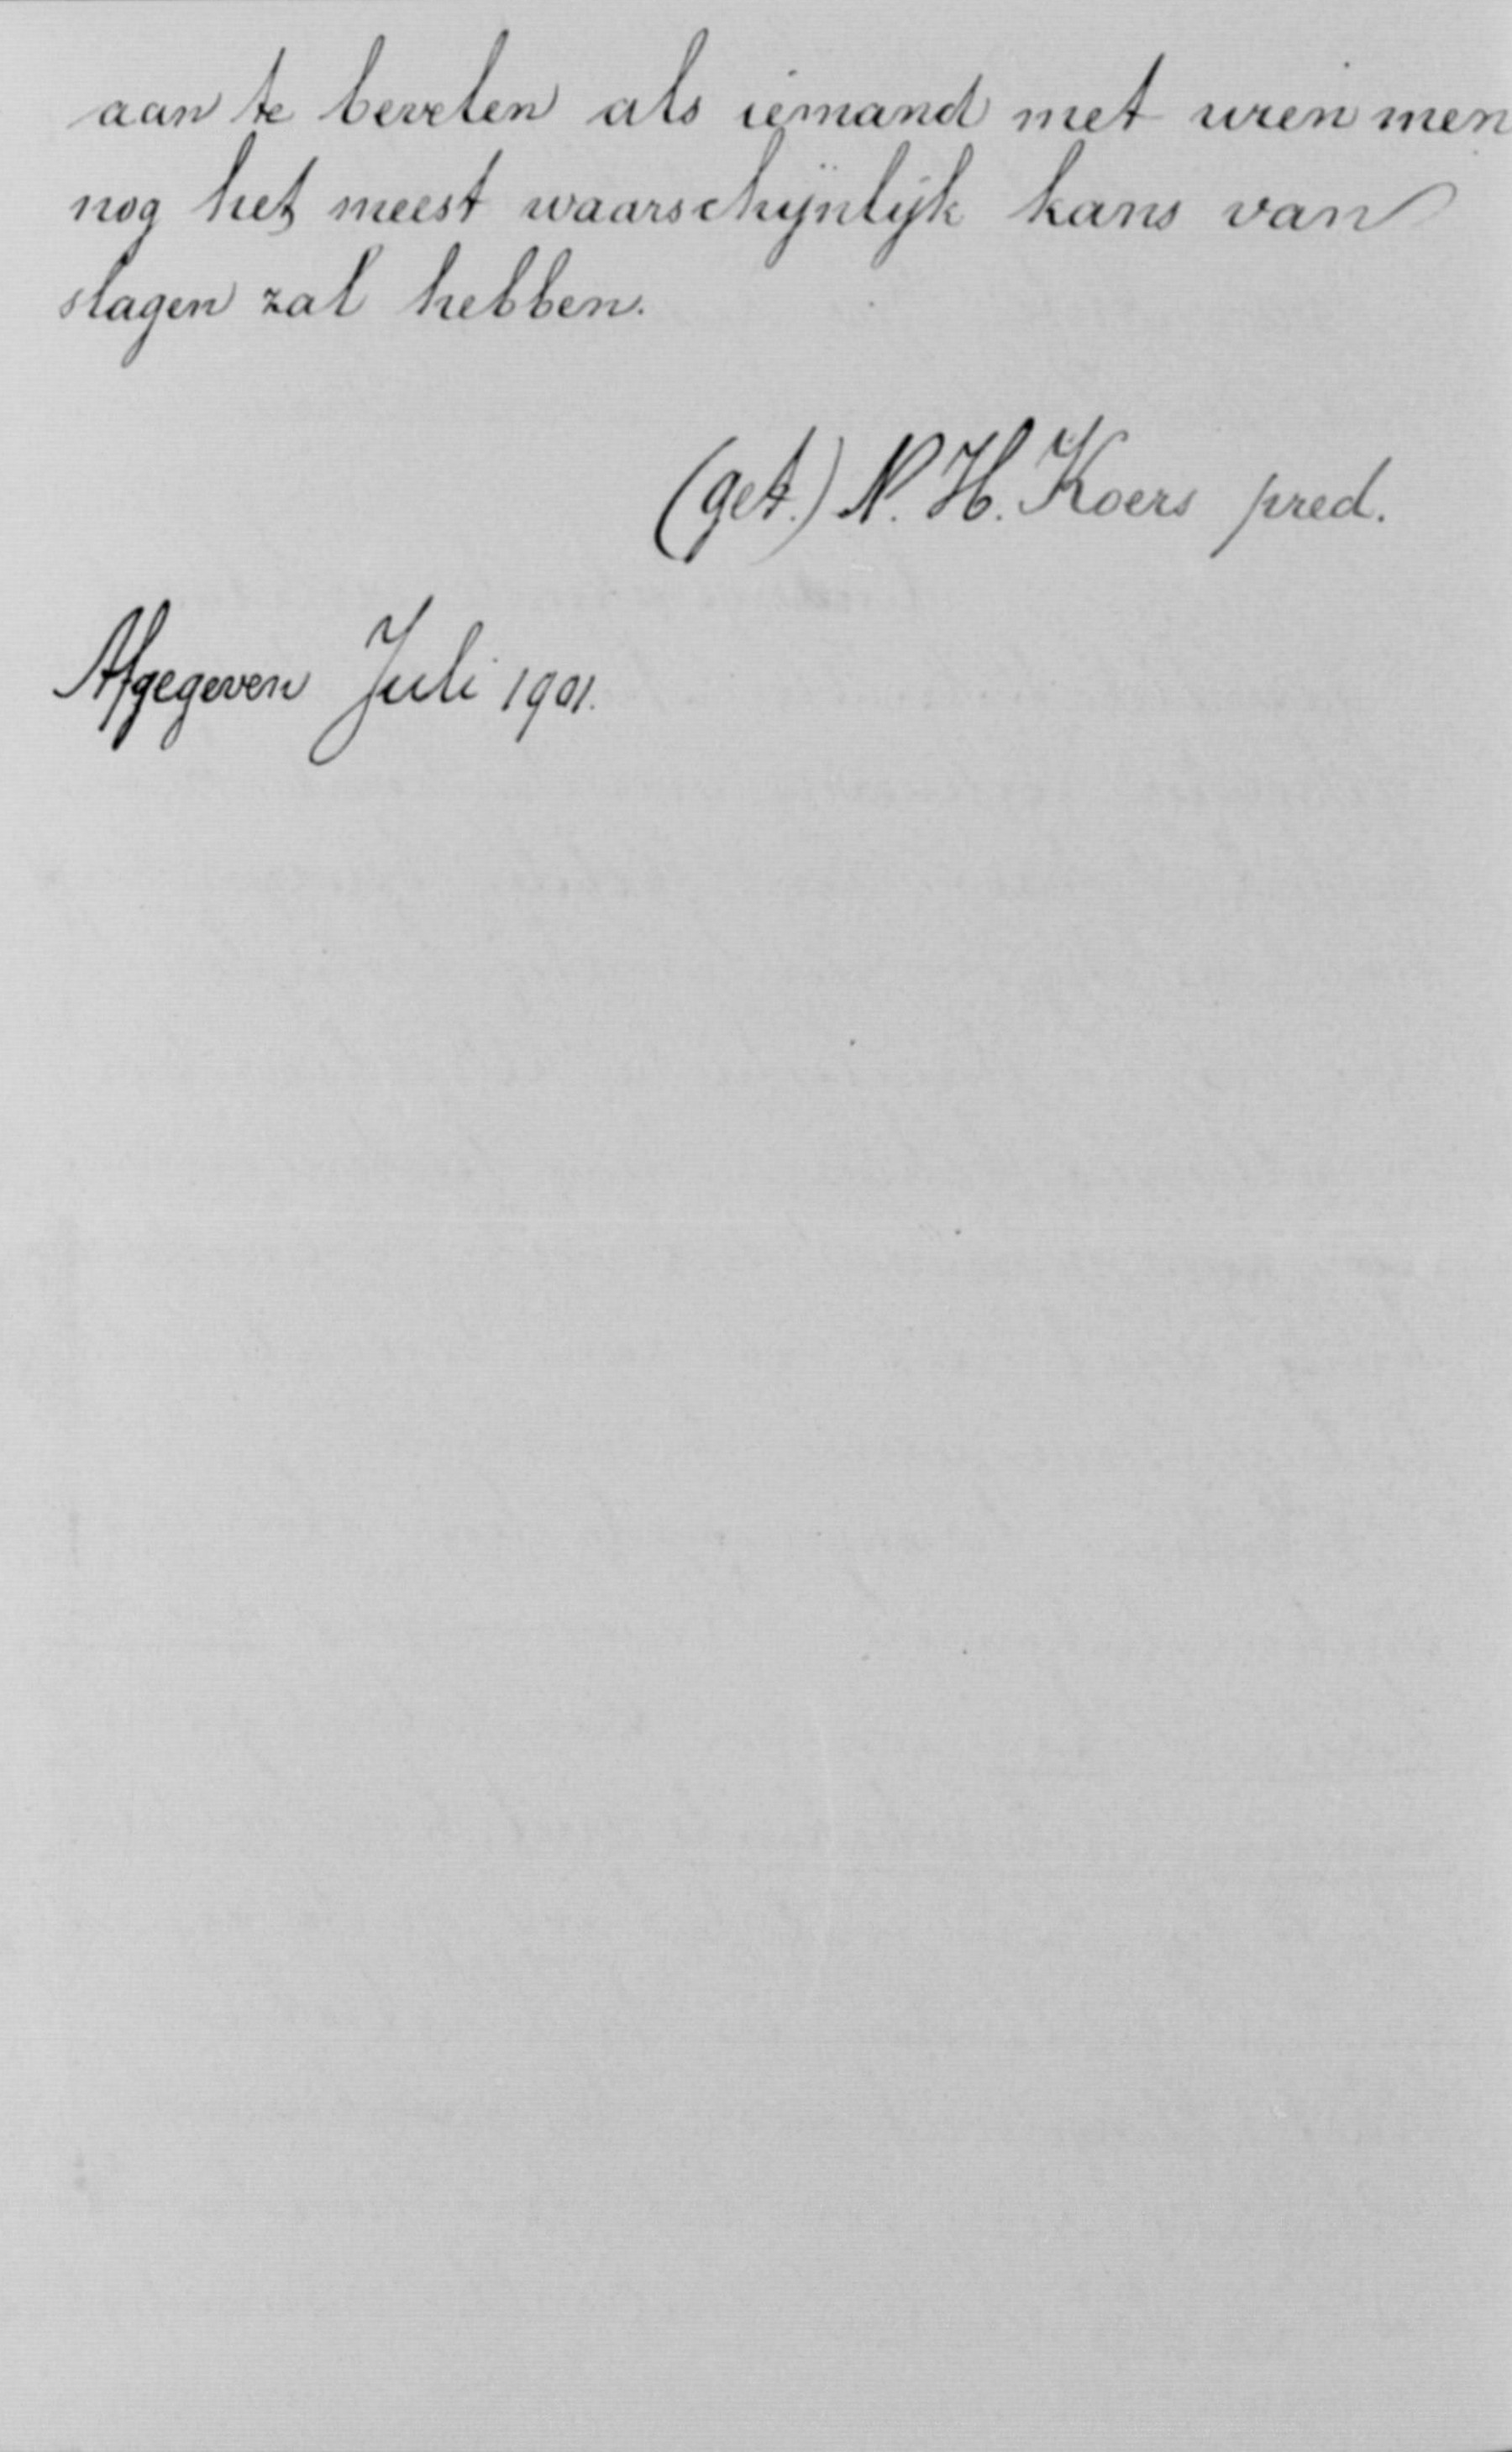 aan te bevelen als iemand met wien men
nog het meest waarschijnlijk kans van
slagen zal hebben.
(get.) N. H. Koers pred.
Afgegeven Juli 1901.